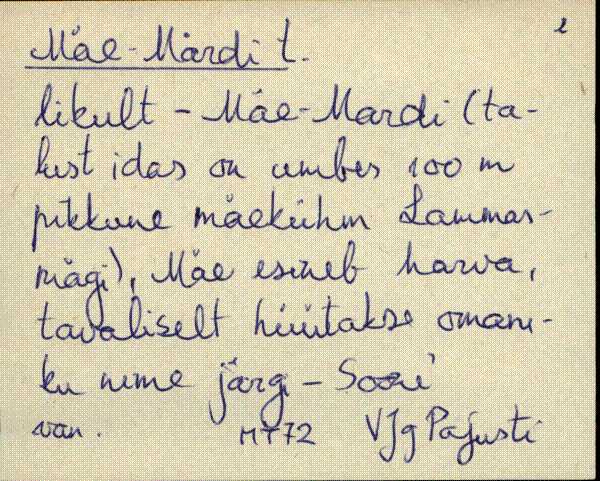 2
Mäe-Märdi t.
likult - Mäe-Mardi (ta-
lust idas on umbes 100 m
pikkune mäekühm Lammas-
mägi), Mäe esineb harva,
tavaliselt hüütakse omani-
ku nime järgi -
van. MT72 VJg Pajusti